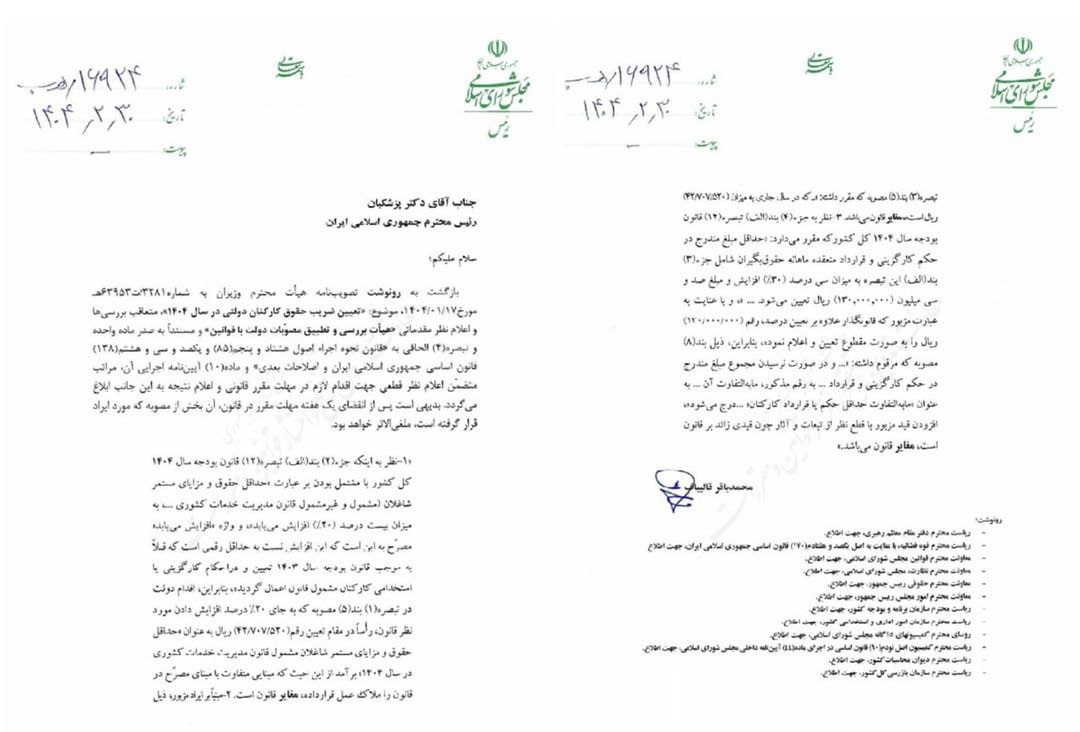 جمهوری اسلامی ایران
مجلس شورای اسلامی
رئیس
بسمه تعالی
شماره: ۱۶۹۲۴/
تاریخ: ۱۴۰۴/۲/۳۰
پیوست: ــ
جناب آقای دکتر پزشکیان
رئیس محترم جمهوری اسلامی ایران
سلام علیکم؛
بازگشت به رونوشت تصویب‌نامه هیأت محترم وزیران به شماره۳۲۸۱/ت۶۳۹۵۳هـ
مورخ۱۴۰۴/۰۱/۱۷، موضوع: «تعیین ضریب حقوق کارکنان دولتی در سال ۱۴۰۴»، متعاقب بررسی‌ها
و اعلام نظر مقدماتی «هیأت بررسی و تطبیق مصوّبات دولت با قوانین» و مستنداً به صدر ماده واحده
و تبصره(۴) الحاقی به «قانون نحوه اجراء اصول هشتاد و پنجم(۸۵) و یکصد و سی و هشتم(۱۳۸)
قانون اساسی جمهوری اسلامی ایران و اصلاحات بعدی» و ماده(۱۰) آیین‌نامه اجرایی آن، مراتب
متضمّن اعلام نظر قطعی جهت اقدام لازم در مهلت مقرر قانونی و اعلام نتیجه به این جانب ابلاغ
می‌گردد. بدیهی است پس از انقضای یک هفته مهلت مقرر در قانون، آن بخش از مصوبه که مورد ایراد
قرار گرفته است، ملغی‌الاثر خواهد بود.
«۱-نظر به اینکه جزء(۲) بند(الف) تبصره(۱۲) قانون بودجه سال ۱۴۰۴
کل کشور با مشتمل بودن بر عبارت «حداقل حقوق و مزایای مستمر
شاغلان (مشمول و غیرمشمول قانون مدیریت خدمات کشوری ...، به
میزان بیست درصد (۲۰٪) افزایش می‌یابد»، و واژه «افزایش می‌یابد»
مصرّح به این است که این افزایش نسبت به حداقل رقمی است که قبلاً
به موجب قانون بودجه سال ۱۴۰۳ تعیین و در احکام کارگزینی یا
استخدامی کارکنان مشمول قانون اعمال گردیده، بنابراین، اقدام دولت
در تبصره(۱) بند(۵) مصوبه که به جای ۲۰٪ درصد افزایش دادن مورد
نظر قانون، رأساً در مقام تعیین رقم(۴۲/۷۰۷/۵۲۰) ریال به عنوان «حداقل
حقوق و مزایای مستمر شاغلان مشمول قانون مدیریت خدمات کشوری
در سال ۱۴۰۴» برآمد از این حیث که مبنایی متفاوت با مبنای مصرّح در
قانون را ملاک عمل قرارداده، مغایر قانون است. ۲-مبنیاً بر ایراد مزبور، ذیل
جمهوری اسلامی ایران
مجلس شورای اسلامی
رئیس
بسمه تعالی
شماره: ۱۶۹۲۴/
تاریخ: ۱۴۰۴/۲/۳۰
پیوست: ــ
تبصره(۳) بند(۵) مصوبه که مقرر داشته: «ـ که در سال جاری به میزان (۴۲/۷۰۷/۵۲۰)
ریال‌است»، مغایر قانون‌می‌باشد. ۳- نظر به جزء(۴) بند(الف) تبصره(۱۲) قانون
بودجه سال ۱۴۰۴ کل کشور که مقرر می‌دارد: «حداقل مبلغ مندرج در
حکم کارگزینی و قرارداد منعقده ماهانه حقوق‌بگیران شامل جزء(۳)
بند(الف) این تبصره به میزان سی درصد (۳۰٪) افزایش و مبلغ صد و
سی میلیون (۱۳۰,۰۰۰,۰۰۰) ریال تعیین می‌شود. ... »، و با عنایت به
عبارت مزبور که قانونگذار علاوه بر تعیین درصد، رقم (۱۲۰/۰۰۰/۰۰۰)
ریال را به صورت مقطوع تعیین و اعلام نموده، بنابراین، ذیل بند(۸)
مصوبه که مرقوم داشته: «... و در صورت نرسیدن مجموع مبلغ مندرج
در حکم کارگزینی و قرارداد ... به رقم مذکور، مابه‌التفاوت آن ... به
عنوان «مابه‌التفاوت حداقل حکم یا قرارداد کارکنان» ...درج می‌شود»،
افزودن قید مزبور با قطع نظر از تبعات و آثار چون قیدی زائد بر قانون
است، مغایر قانون می‌باشد.»
محمدباقر قالیباف
رونوشت:
- ریاست محترم دفتر مقام معظم رهبری، جهت اطلاع.
- ریاست محترم قوه قضائیه، با عنایت به اصل یکصد و هفتادم(۱۷۰) قانون اساسی جمهوری اسلامی ایران، جهت اطلاع
- معاونت محترم قوانین مجلس شورای اسلامی، جهت اطلاع.
- معاونت محترم نظارت، مجلس شورای اسلامی، جهت اطلاع.
- معاونت محترم حقوقی رییس جمهور، جهت اطلاع.
- معاونت محترم امور مجلس رییس جمهور، جهت اطلاع.
- ریاست محترم سازمان برنامه و بودجه کشور، جهت اطلاع.
- ریاست محترم سازمان امور اداری و استخدامی کشور، جهت اطلاع.
- روسای محترم کمیسیونهای ۱۵گانه مجلس شورای اسلامی، جهت اطلاع.
- ریاست محترم کمیسیون اصل نودم(۹۰) قانون اساسی در اجرای ماده(۴۴) آیین‌نامه داخلی مجلس شورای اسلامی، جهت اطلاع.
- ریاست محترم دیوان محاسبات کشور، جهت اطلاع.
- ریاست محترم سازمان بازرسی کل‌کشور، جهت اطلاع.